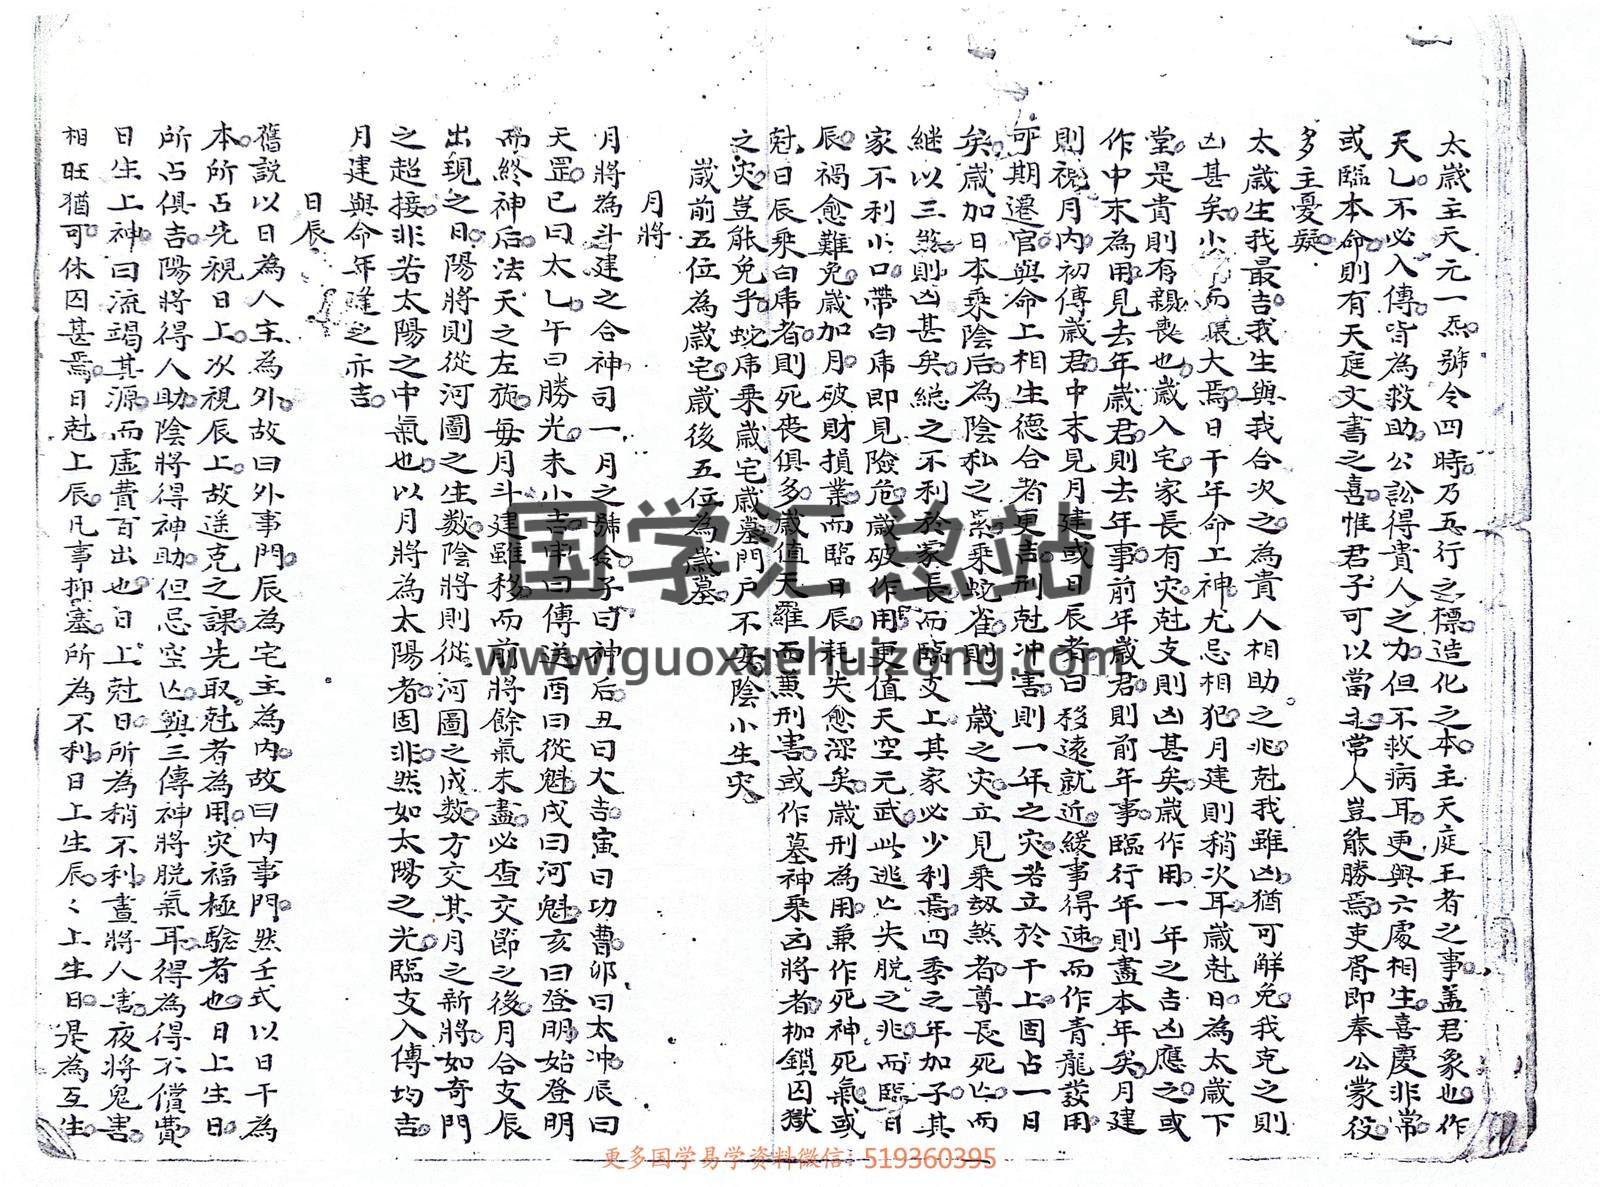 太歲主天元一炁號令四時乃五行之標造化之本主天庭王者之事盖君象也作
天乙不必入傳皆為救助公訟得貴人之力但不救病耳更與六處相生喜慶非常
或臨本命則有天庭文書之喜惟君子可以當之常人豈能勝焉吏胥即奉公蒙役
多主憂疑
太歲生我最吉我生與我合次之為貴人相助之兆尅我雖凶猶可解免我克之則
凶甚矣少而大焉日干年命上神尤忌相犯月建則稍次耳歲尅日為太歲下
堂是貴則有親喪也歲入宅家長有灾尅支則凶甚矣歲作用一年之吉凶應之或
作中末為用見去年歲君則去年事前年歲君則前年事臨行年則盡本年矣月建
則視月內初傳歲君中末見月建或日辰者曰移遠就近緩事得速而作青龍發用
可期遷官與命上相生德合者更吉刑尅冲害則一年之灾若立於干上固占一日
矣歲加日本乘陰后為陰私之乘蛇雀則一歲之灾立見乘刼煞者尊長死亡而
継以三煞則凶甚矣縂之不利於家長而臨支上其家必少利焉四季之年加子其
家不利小口帶白虎即見險危歲破作用更值天空元武此逃亡失脫之兆而臨日
辰禍愈難免歲加月破財損業而臨日辰耗失愈深矣歲刑為用兼作死神死氣或
尅日辰乘白虎者則死喪俱多歲值天羅而兼刑害或作墓神乘凶將者枷鎖囚獄
之灾豈能免乎蛇虎乗歲宅歲墓門戶不安陰小生灾
歲前五位為歲宅歲後五位為歲墓
月將
月將為斗建之合神司一月之號令子曰神后丑曰大吉寅曰功曹卯曰太冲辰曰
天罡巳曰太乙午曰勝光未小吉申曰傳送酉曰從魁戌曰河魁亥曰登明始登明
而終神后法天之左旋每月斗建雖移而前將餘氣未盡必查交節之後月合支辰
出現之日陽將則從河圖之生数陰將則從河圖之成数方交其月之新將如奇門
之超接非若太陽之中氣也以月將為太陽者固非然如太陽之光臨支入傳均吉
月建與命年逢之亦吉
日辰
舊說以日為人主為外故曰外事門辰為宅主為內故曰內事門然壬式以日干為
本所占先視日上次視辰上故遥克之課先取尅者為用灾福極騐者也日上生日
所占俱吉陽將得人助陰將得神助但忌空亡與三傳神將脫氣耳得為得不償費
日生上神曰流竭其源而虛費百出也日上尅日所為稍不利晝將人害夜將鬼害
相旺猶可休囚甚焉日尅上辰凡事抑塞所為不利日上生辰辰上生日是為互生
国学汇总站
www.guoxuehuizong.com
更多国学易学资料微信:519360395